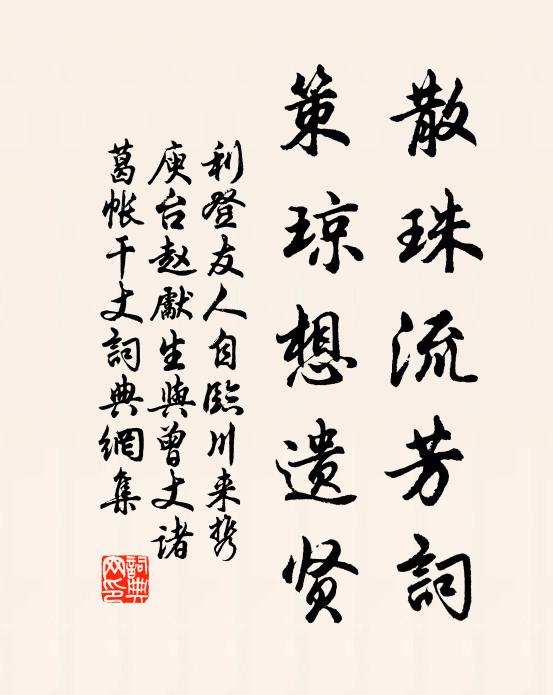 散珠流芳詞
策琼想遗贤
利登友人自臨川来携
庾台赵獻生與曾丈诸
葛帐干丈詞典網集
詞典网印